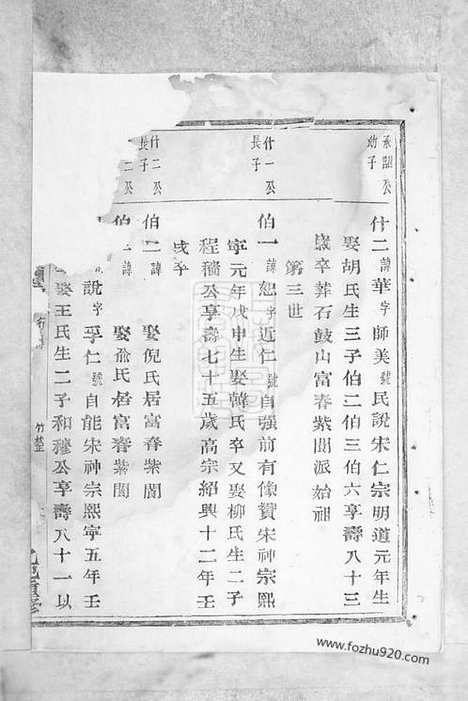 承詔公
幼子
什二諱華字師美號民說宋仁宗明道元年生
娶胡氏生三子伯二伯三伯六享壽八十三
歲卒葬石鼓山富春紫閬派始祖
第三世
什一公
長子
伯一諱恕字近仁號自强前有像贊宋神宗熙
寧元年戊申生娶韓氏卒又娶柳氏生二子
程穡公享壽七十五歲高宗紹興十二年壬
戌卒
什二公
長子
伯二諱 娶倪氏居富春紫閬
二公
伯 諱 娶俞氏居富春紫閬
說字孚仁號自能宋神宗熙寧五年壬
娶王氏生二子和穆公享壽八十一以
www.fozhu920.com